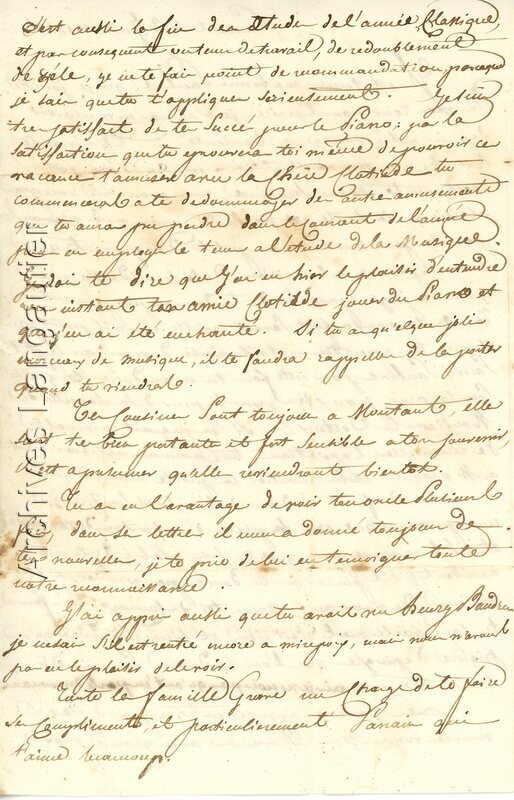 C'est aussi la fin des Etude de l'année Classique,
et par consequent un tems de travail, de redoublement
de zéle, je ne te fais point de recommandation parceque
je sais que tu t'appliques serieusement. Je suis
tres satisfait de tes Succé pour le Piano; par la
satisfaction que tu eprouvera toi même de pouvoir ce
vacance t'amuser avec la Chere Clotilde tu
commencera a te dedommager des autre amusements
que tu aura pu perdre dans le Courant de l'année
pour en employer le tems a l'etude de la Musique.
Je dois te dire que J'ai eu hier le plaisir d'entendre
un instant ton amie Clotilde jouer du Piano et
que j'en ai été enchanté. Si tu as quelque jolis
morceaux de musique, il te faudra rappeller de les porter
quand tu viendras.
Tes Cousines Sont toujours a Montaut, elle
sont tres bien portante et fort Sensible a ton souvenir,
il est a presumer qu'elle reviendront bientot.
Tu as eu l'avantage de voir ton oncle Plusieurs
dans ses lettre il nous a donné toujours de
tes nouvelles, je te prie de lui en temoigner toute
notre reconnaissance.
J'ai appris aussi que tu avais vu henry
je ne sais S'il est resté encore a mirepoix, mais nous n'avons
pas eu le plaisir de le voir.
Toute la famille me Charge de te faire
ses Compliments, et particulierement Parrain qui
t'aime beaucoup.
Archives Langautier